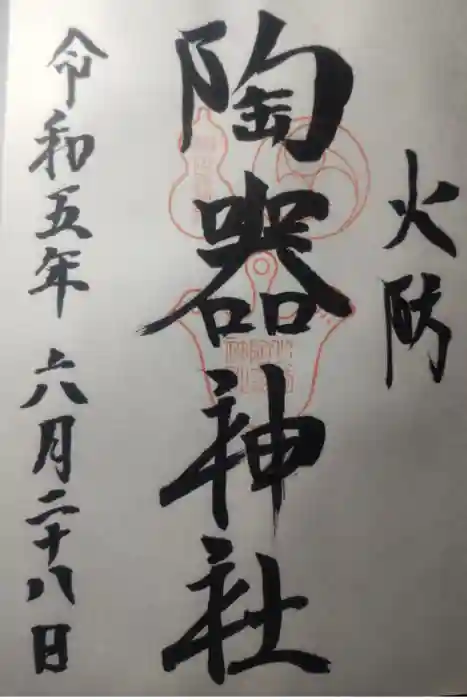 火防
陶器神社
令和五年六月二十八日